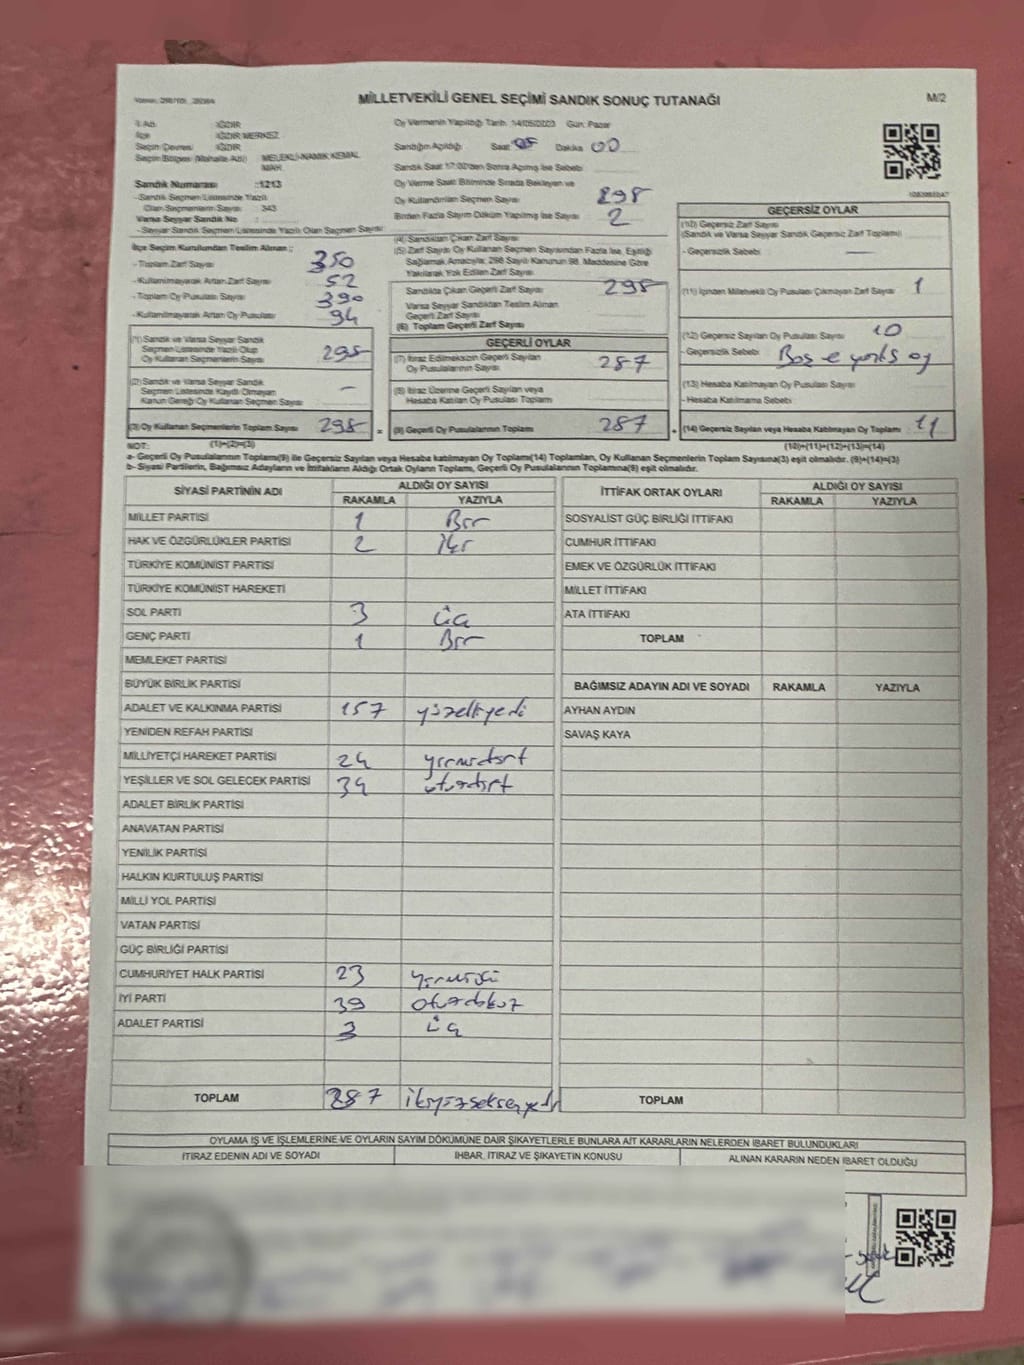 MİLLETVEKİLİ GENEL SEÇİMİ SANDIK SONUÇ TUTANAĞI
M/2
İl Adı : IĞDIR
İlçe : IĞDIR MERKEZ
Seçim Çevresi : IĞDIR
Seçim Bölgesi (Mahalle Adı) : MELEKLİ-NAMIK KEMAL MAH.
Sandık Numarası : 1213
-Sandık Seçmen Listesinde Yazılı
Olan Seçmenlerin Sayısı : 343
Varsa Seyyar Sandık No :
- Seyyar Sandık Seçmen Listesinde Yazılı Olan Seçmen Sayısı:
Oy Vermenin Yapıldığı Tarih: 14/05/2023 Gün: Pazar
Sandığın Açıldığı Saat: Dakika 00
Sandık Saat 17:00'den Sonra Açılmış İse Sebebi
Oy Verme Saati Bitiminde Sırada Bekleyen ve
Oy Kullandırılan Seçmen Sayısı 298
Birden Fazla Sayım Döküm Yapılmış İse Sayısı 2
İlçe Seçim Kurulundan Teslim Alınan ;
- Toplam Zarf Sayısı 350
- Kullanılmayarak Artan Zarf Sayısı 52
- Toplam Oy Pusulası Sayısı 390
- Kullanılmayarak Artan Oy Pusulası 94
(1) Sandık ve Varsa Seyyar Sandık
Seçmen Listesinde Yazılı Olup
Oy Kullanan Seçmen Sayısı 298
(2) Sandık ve Varsa Seyyar Sandık
Seçmen Listesinde Kaydı Olmayan
Kanun Gereği Oy Kullanan Seçmen Sayısı —
(3) Oy Kullanan Seçmenlerin Toplam Sayısı 298
(1)+(2)=(3)
(4) Sandıktan Çıkan Zarf Sayısı
(5) Zarf Sayısı Oy Kullanan Seçmen Sayısından Fazla İse, Eşitliği
Sağlamak Amacıyla; 298 Sayılı Kanunun 98. Maddesine Göre
Yakılarak Yok Edilen Zarf Sayısı
Sandıkta Çıkan Geçerli Zarf Sayısı 298
Varsa Seyyar Sandıktan Teslim Alınan
Geçerli Zarf Sayısı
(6) Toplam Geçerli Zarf Sayısı
GEÇERLİ OYLAR
(7) İtiraz Edilmeksizin Geçerli Sayılan
Oy Pusulalarının Sayısı 287
(8) İtiraz Üzerine Geçerli Sayılan veya
Hesaba Katılan Oy Pusulası Toplamı
(9) Geçerli Oy Pusulalarının Toplamı 287
GEÇERSİZ OYLAR
(10) Geçersiz Zarf Sayısı
(Sandık ve Varsa Seyyar Sandık Geçersiz Zarf Toplamı)
- Geçersizlik Sebebi —
(11) İçinden Milletvekili Oy Pusulası Çıkmayan Zarf Sayısı 1
(12) Geçersiz Sayılan Oy Pusulası Sayısı 10
- Geçersizlik Sebebi Boş oy
(13) Hesaba Katılmayan Oy Pusulası Sayısı
- Hesaba Katılmama Sebebi
(14) Geçersiz Sayılan veya Hesaba Katılmayan Oy Toplamı 11
(10)+(11)+(12)+(13)=(14)
NOT:
a- Geçerli Oy Pusulasının Toplamı(9) ile Geçersiz Sayılan veya Hesaba katılmayan Oy Toplamı(14) Toplamları, Oy Kullanan Seçmenlerin Toplam Sayısına(3) eşit olmalıdır. (9)+(14)=(3)
b- Siyasi Partilerin, Bağımsız Adayların ve İttifakların Aldığı Ortak Oyların Toplamı, Geçerli Oy Pusulalarının Toplamına(9) eşit olmalıdır.
SİYASİ PARTİNİN ADI ALDIĞI OY SAYISI
RAKAMLA YAZIYLA
MİLLET PARTİSİ 1 Bir
HAK VE ÖZGÜRLÜKLER PARTİSİ 2 iki
TÜRKİYE KOMÜNİST PARTİSİ
TÜRKİYE KOMÜNİST HAREKETİ
SOL PARTİ 3 üç
GENÇ PARTİ 1 Bir
MEMLEKET PARTİSİ
BÜYÜK BİRLİK PARTİSİ
ADALET VE KALKINMA PARTİSİ 157 yüzelliyedi
YENİDEN REFAH PARTİSİ
MİLLİYETÇİ HAREKET PARTİSİ 24 yirmidört
YEŞİLLER VE SOL GELECEK PARTİSİ 34 otuzdört
ADALET BİRLİK PARTİSİ
ANAVATAN PARTİSİ
YENİLİK PARTİSİ
HALKIN KURTULUŞ PARTİSİ
MİLLİ YOL PARTİSİ
VATAN PARTİSİ
GÜÇ BİRLİĞİ PARTİSİ
CUMHURİYET HALK PARTİSİ 23 yirmiüç
İYİ PARTİ 39 otuzdokuz
ADALET PARTİSİ 3 üç
TOPLAM 287 ikiyüzseksenyedi
İTTİFAK ORTAK OYLARI ALDIĞI OY SAYISI
RAKAMLA YAZIYLA
SOSYALİST GÜÇ BİRLİĞİ İTTİFAKI
CUMHUR İTTİFAKI
EMEK VE ÖZGÜRLÜK İTTİFAKI
MİLLET İTTİFAKI
ATA İTTİFAKI
TOPLAM
BAĞIMSIZ ADAYIN ADI VE SOYADI RAKAMLA YAZIYLA
AYHAN AYDIN
SAVAŞ KAYA
TOPLAM
OYLAMA İŞ VE İŞLEMLERİNE VE OYLARIN SAYIM DÖKÜMÜNE DAİR ŞİKAYETLERLE BUNLARA AİT KARARLARIN NELERDEN İBARET BULUNDUKLARI
İTİRAZ EDENİN ADI VE SOYADI İHBAR, İTİRAZ VE ŞİKAYETİN KONUSU ALINAN KARARIN NEDEN İBARET OLDUĞU